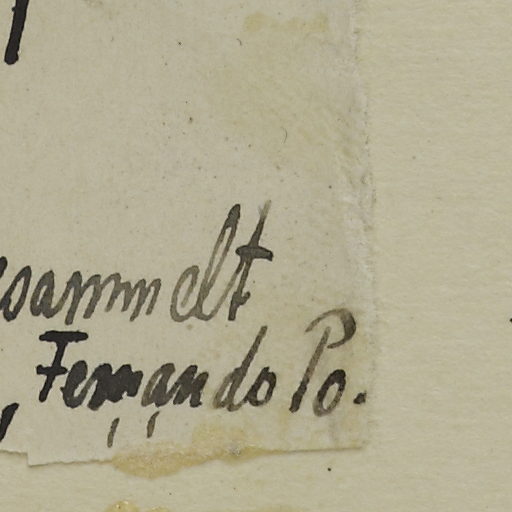 esammelt
, Fernando Po.